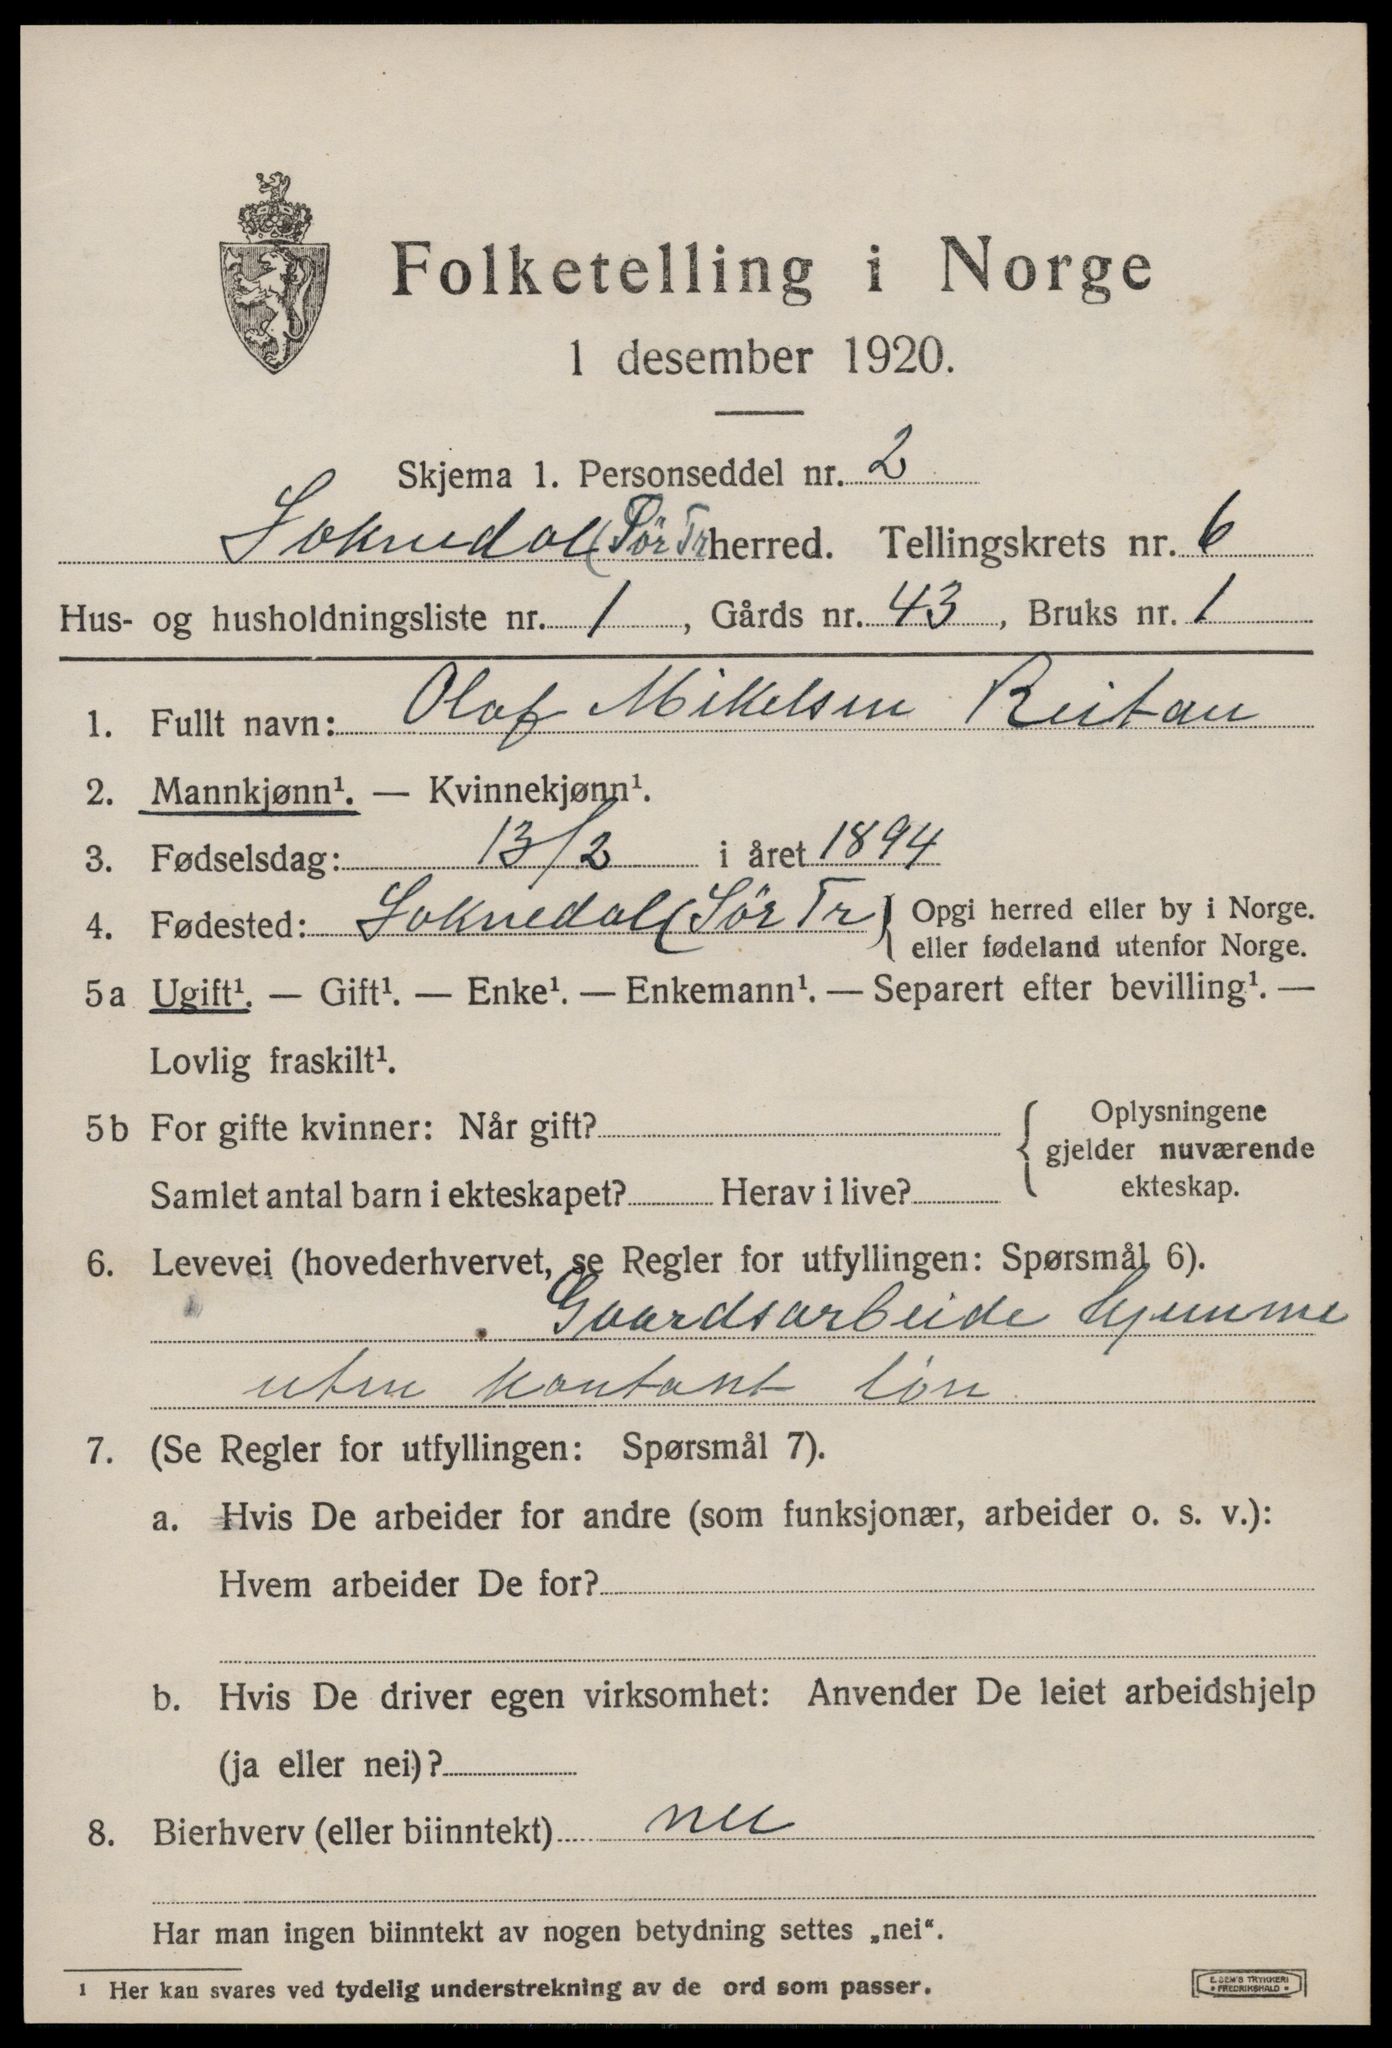 Folketelling i Norge
1 desember 1920.
Skjema 1. Personseddel nr. 2
Soknedal (Sör Tr herred. Tellingskrets nr. 6
Hus- og husholdningsliste nr. 1, Gårds nr. 43, Bruks nr. 1
1. Fullt navn: Olaf Mikkelsen Reitan
2. Mannkjønn¹. — Kvinnekjønn¹.
3. Fødselsdag: 13/2 i året 1894
4. Fødested: Soknedal (Sör Tr) Opgi herred eller by i Norge.
eller fødeland utenfor Norge.
5a Ugift¹. — Gift¹. — Enke¹. — Enkemann¹. — Separert efter bevilling¹. —
Lovlig fraskilt¹.
5b For gifte kvinner: Når gift?
Samlet antal barn i ekteskapet? Herav i live?
Oplysningene
gjelder nuværende
ekteskap.
6. Levevei (hovederhvervet, se Regler for utfyllingen: Spørsmål 6).
Gaardsarbeide hjemme
uten kontant løn
7. (Se Regler for utfyllingen: Spørsmål 7).
a. Hvis De arbeider for andre (som funksjonær, arbeider o. s. v.):
Hvem arbeider De for?
b. Hvis De driver egen virksomhet: Anvender De leiet arbeidshjelp
(ja eller nei)?
8. Bierhverv (eller biinntekt) nei
Har man ingen biinntekt av nogen betydning settes „nei“.
¹ Her kan svares ved tydelig understrekning av de ord som passer.
E. SEM'S TRYKKERI
* FREDRIKSHALD *